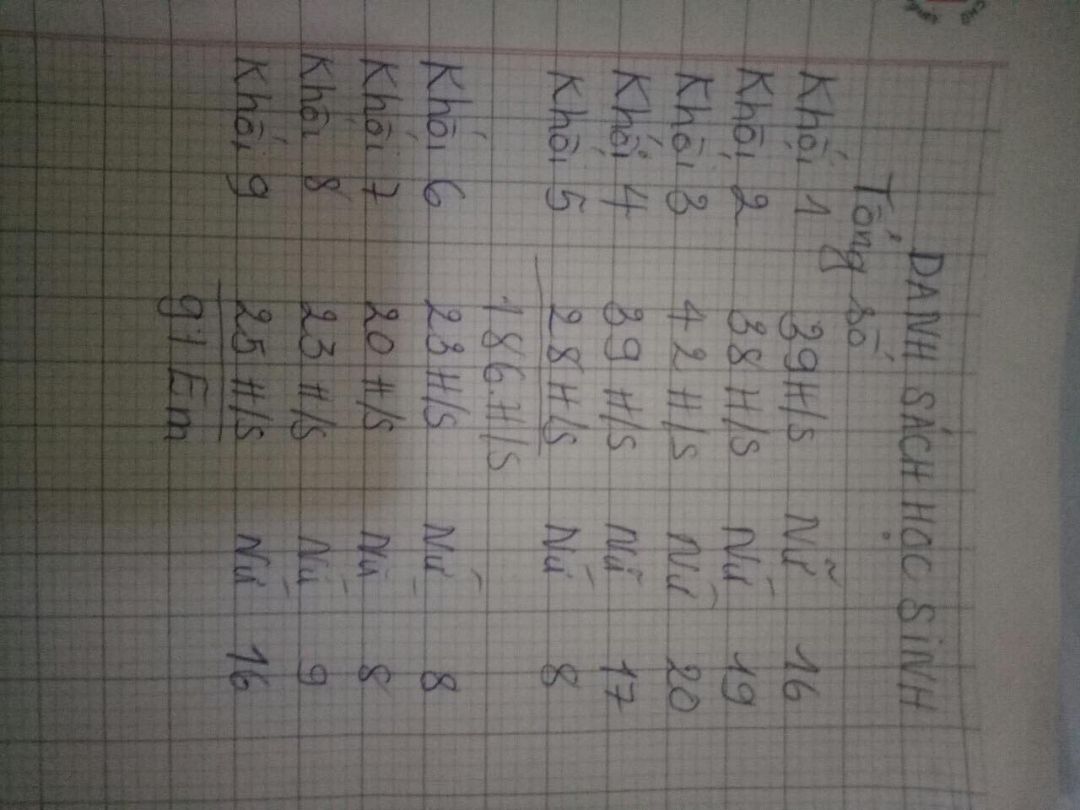 DANH SÁCH HỌC SINH
Tổng số
Khối 1 39H/s Nữ 16
Khối 2 38H/s Nữ 19
Khối 3 42 H/s Nữ 20
Khối 4 39 H/s Nữ 17
Khối 5 28H/s Nữ 8
186.H/s
Khối 6 23H/s Nữ 8
Khối 7 20 H/s Nữ 8
Khối 8 23H/s Nữ 9
Khối 9 25H/s Nữ 16
91 Em